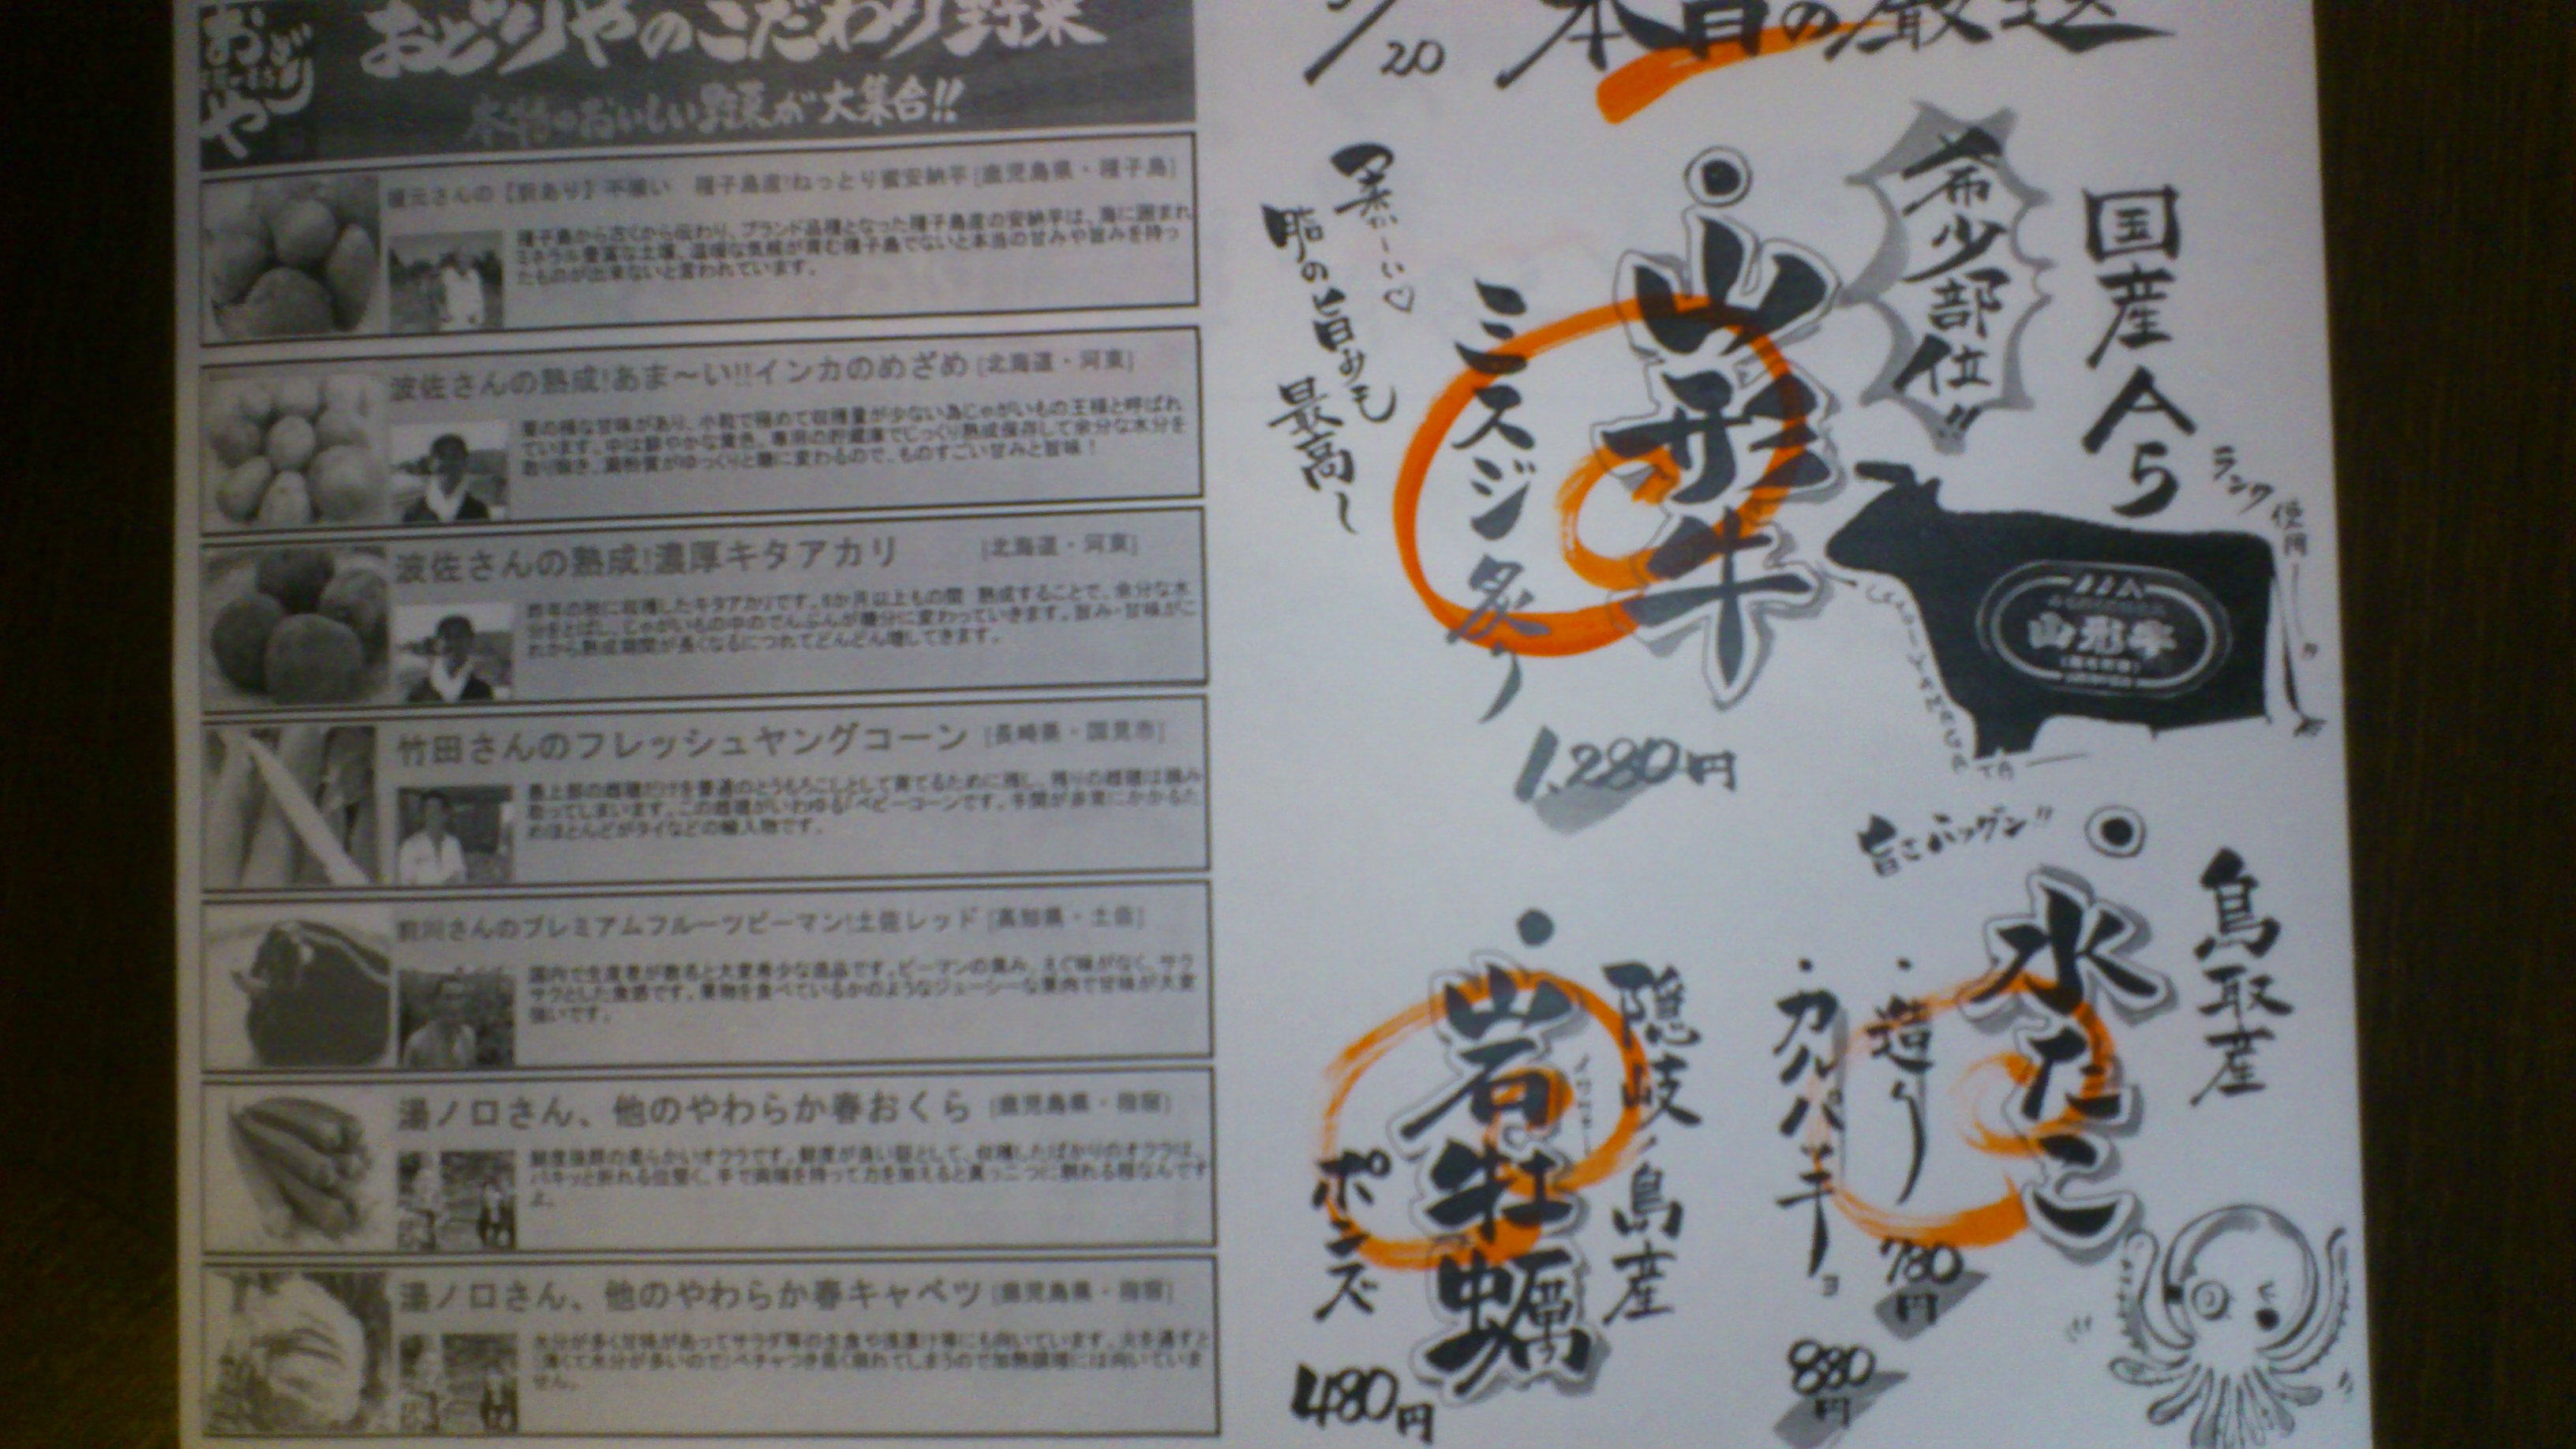 おどりや
おどりやのこだわり野菜
本物のおいしい野菜が大集合!!
種子島産!ねっとり蜜安納芋 [鹿児島県・種子島]
種子島から古くから伝わり、ブランド品種となった種子島産の安納芋は、海に囲まれ
ミネラル豊富な土壌、温暖な気候が育む種子島でないと本当の甘みや旨みを持っ
たものが出来ないと言われています。
波佐さんの熟成!あま～い!!インカのめざめ [北海道・河東]
栗の様な甘味があり、小粒で極めて収穫量が少ない為じゃがいもの王様と呼ばれ
ています。中は鮮やかな黄色。専用の貯蔵庫でじっくり熟成保存して余分な水分を
取り除き、澱粉質がゆっくりと糖に変わるので、ものすごい甘みと旨味！
波佐さんの熟成!濃厚キタアカリ [北海道・河東]
昨年の秋に収穫したキタアカリです。6か月以上もの間 熟成することで、余分な水
分をとばし、じゃがいもの中のでんぷんが糖分に変わっていきます。旨み・甘味がこ
れから熟成期間が長くなるにつれてどんどん増してきます。
竹田さんのフレッシュヤングコーン [長崎県・国見市]
最上部の雌穂だけを普通のとうもろこしとして育てるために残し、残りの雌穂は摘み
取ってしまいます。この雌穂がいわゆる「ベビーコーン」です。手間が非常にかかるた
めほとんどがタイなどの輸入物です。
前川さんのプレミアムフルーツピーマン!土佐レッド [高知県・土佐]
国内で生産者が数名と大変希少な逸品です。ピーマンの臭み、えぐ味がなく、サク
サクとした食感です。果物を食べているかのようなジューシーな果肉で甘味が大変
強いです。
湯ノ口さん、他のやわらか春おくら [鹿児島県・指宿]
鮮度抜群の柔らかいオクラです。鮮度が良い証として、収穫したばかりのオクラは、
パキッと折れる位堅く、手で両端を持って力を加えると真っ二つに割れる程なんです
よ。
湯ノ口さん、他のやわらか春キャベツ [鹿児島県・指宿]
水分が多く甘味があってサラダ等の生食や浅漬け等にも向いています。火を通すと
(薄くて水分が多いので)ベチャつき易く崩れてしまうので加熱調理には向いていま
せん。
/20
本日の厳選
国産A5
ランク使用
希少部位!!
山形牛
ミスジ炙り
脂の旨みも
最高〜
1,280円
山形牛
鳥取産
旨さバツグン!!
水たこ
・造り
780円
・カルパッチョ
880円
隠岐ノ島産
岩牡蠣
ポンズ
480円